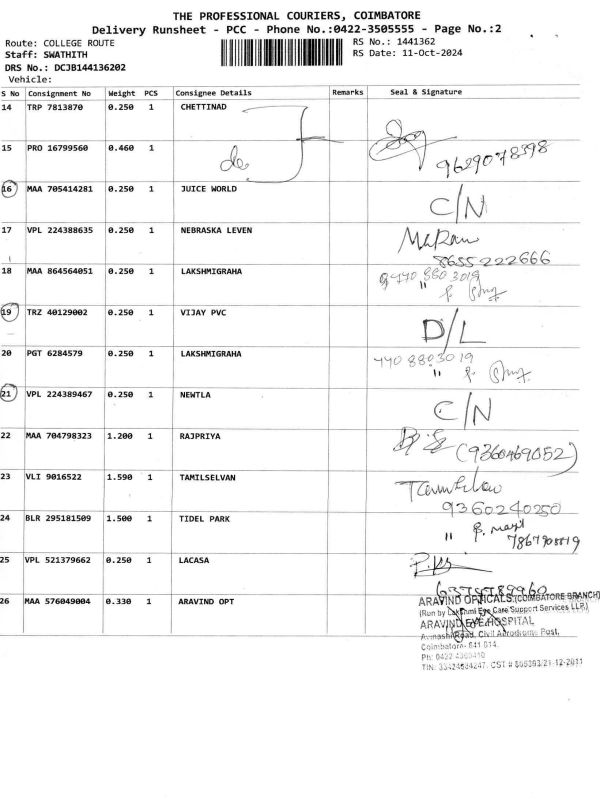 THE PROFESSIONAL COURIERS, COIMBATORE
Delivery Runsheet - PCC - Phone No.:0422-3505555 - Page No.:2
Route: COLLEGE ROUTE RS No.: 1441362
Staff: SWATHITH RS Date: 11-Oct-2024
DRS No.: DCJB144136202
Vehicle:
S No Consignment No Weight PCS Consignee Details Remarks Seal & Signature
14 TRP 7813870 0.250 1 CHETTINAD
15 PRO 16799560 0.460 1 de 9629078398
16 MAA 705414281 0.250 1 JUICE WORLD C/N
17 VPL 224388635 0.250 1 NEBRASKA LEVEN
8655222666
18 MAA 864564051 0.250 1 LAKSHMIGRAHA
19 TRZ 40129002 0.250 1 VIJAY PVC D/L
20 PGT 6284579 0.250 1 LAKSHMIGRAHA
21 VPL 224389467 0.250 1 NEWTLA C/N
22 MAA 704798323 1.200 1 RAJPRIYA (9360469052)
23 VLI 9016522 1.590 1 TAMILSELVAN
9360240250
24 BLR 295181509 1.500 1 TIDEL PARK
25 VPL 521379662 0.250 1 LACASA
26 MAA 576049004 0.330 1 ARAVIND OPT
ARAVIND OPTICALS (COIMBATORE BRANCH)
(Run by Lakshmi Eye Care Support Services LLP.)
ARAVIND EYE HOSPITAL
Avinashi Road, Civil Aerodrome Post,
Coimbatore- 641 014.